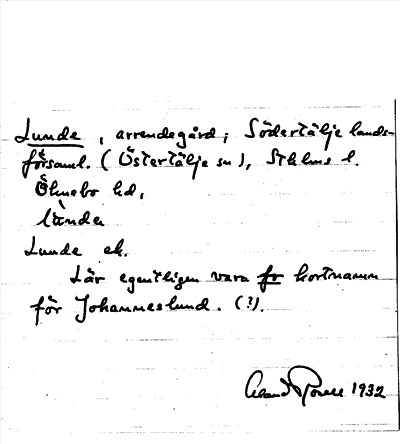 Lunde, arrendegård, Södertälje lands-
församl. (Östertälje sn), Sthlms l.
Öknebo hd,
lùndə
Lunde ek.
Lär egentligen vara fo kortnamn
för Johanneslund. (?).
1932